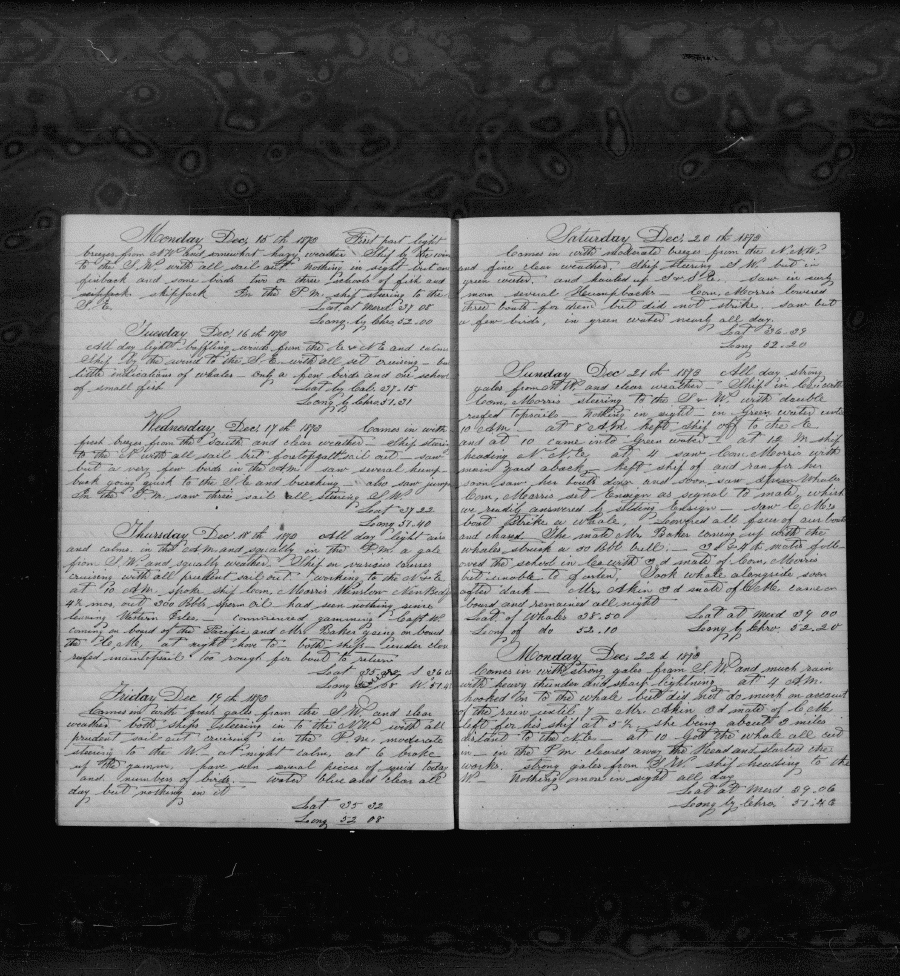 Monday Dec. 15th 1873 First part light
breezes from N.W. and somewhat hazy weather Ship by the win
to the S.W. with all sail out. Nothing in sight but a
finback and some birds two or three schools of fish and
skipjack In the P.M. ship steering to the
S.E. Lat at Merid 37.08
Loong by Chro 52.00
Tuesday Dec. 16th 1873
All day light baffling winds from the E & NE and calms
Ship by the wind to the S.E. with all set cruising - but
little indications of whales - only a few birds and one school
of small fish Lat by Cal. 37.15
Loong by Chro. 51.31
Wednesday Dec. 17th 1873 Comes in with
fresh breezes from the South and clear weather - Ship steerin
to the N with all sail but foretopgall sail out - saw
but a very few birds in the A.M. saw several hump-
back going quick to the S.E. and breaching - also saw jump
In the P.M. saw three sail all steering S.W.
Lat 37.22
Loong 51.40
Thursday Dec. 18th 1873 All day light airs
and calms in the A.M. and squally in the P.M. a gale
from S.W. and squally weather Ship on various courses
cruising with all prudent sail out working to the N & E
at 10 A.M. spoke ship Com. Morris Winslow New Bedf
4 1/2 mos. out 300 Bbls. Sperm Oil had seen nothing since
leaving Western Isles. - commenced gamming Capt W.
coming on board of the Pacific and Mr. Baker going on board
the C.M. at night hove to - both ships under close
reefed maintopsail too rough for boat to return
Lat S 36
Loong W. 51.4
Friday Dec 19th 1873
Comes in with fresh gales from the S.W. and clear
weather both ships steering to the N. with all
prudent sail out cruising in the P.M. moderate
steering to the W. at night calm, at 6 broke
up the gamm. have seen several pieces of squid today
and numbers of birds. - water blue and clear all
day but nothing in it
Lat 35 32
Loong 52 08
Saturday Dec. 20th 1873
Comes in with moderate breezes from the N.N.W.
and fine clear weather. Ship steering S.W. but in
green water, and hauled up S & E. saw in early
morn several Humpbacks Com. Morris lowered
three boats for them but did not strike. saw but
a few birds, in green water nearly all day.
Lat 36.39
Loong 52.20
Sunday Dec 21th 1873 All day strong
gales from N.W. and clear weather - Ship in Co. with
Com. Morris steering to the S & W. with double
reefed topsails - nothing in sight - in Green water until
10 A.M. - at 8 A.M. kept ship off to the E
and at 10 came into Green water - at 12 M ship
heading N.N.E. at 4 saw Com. Morris with
main yard aback. kept ship of and ran for her
soon saw her boats down and soon saw Sperm Whales
Com. Morris set Ensign as signal to mate, which
we readily answered by setting Ensign - saw C.M.s
boat Strike a whale, Lowered all four of our boats
and chased The mate Mr. Baker coming up with the
whales struck a 30 Bbl bull: - 3d & 4th mates foll-
owed the school in Co. with 3d mate of Com. Morris
but unable to fasten Took whale alongside soon
after dark - Mr. Akin 3d mate of C.M. came on
board and remained all night
Lat. of Whales 38.50 Lat at Merid 39 00
Loong of do 52.10 Loong by Chro. 52.20
Monday Dec. 22d 1873
Comes in with strong gales from S.W. and much rain
with heavy thunder and sharp lightning at 4 A.M.
hooked on to the whale but did not do much on account
of the rain until 7 Mr. Akin 3d mate of C.M.
left for his ship at 5 1/2, she being about 3 miles
distant to the N.E - at 10 Got the whale all cut
in - in the P.M cleared away the Head and started the
works. strong gales from S.W. ship heading to the
W. - Nothing more in sight all day
Lat at Merid 39.06
Loong by Chro. 51.46